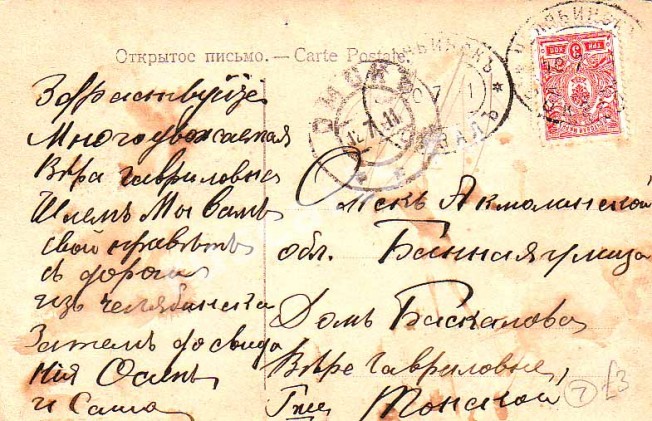 Открытое письмо. — Carte Postale.
Здраствуйте
Многоуважаемая
Вѣра Гавриловна
Шлемъ Мы Вамъ
свой привѣтъ
съ дороги
изъ Челябинска
Затемъ досвида
ния
и Саша
Омскъ Акмолинской
обл. Банная улица
Домъ Баскалова
Вѣре Гавриловне,
Гже
ОМСКЪ
12.7.11
ЧЕЛЯБИНСКЪ
ВОКЗАЛ
7
£3